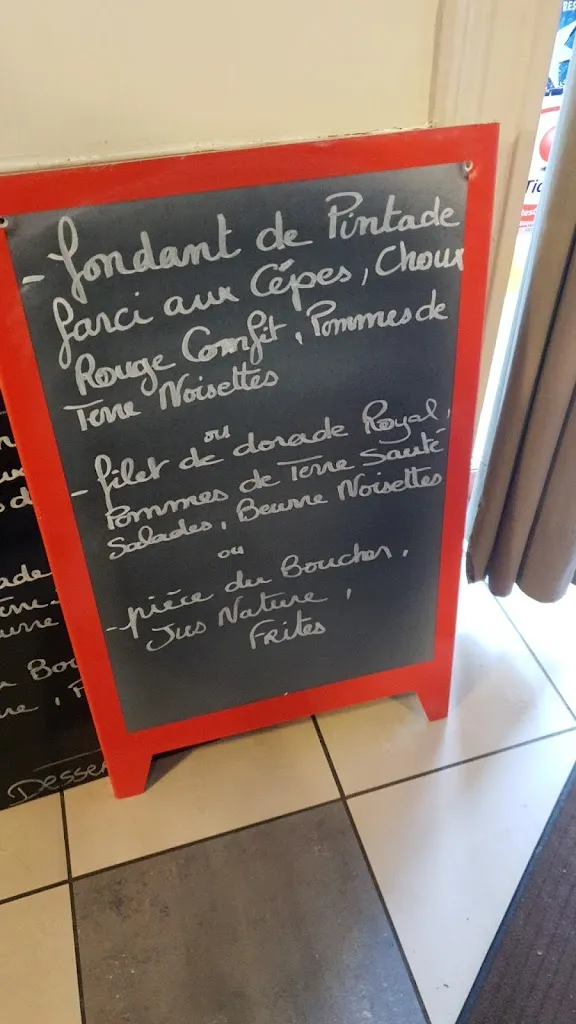 - fondant de Pintade
farci aux Cépes, Choux
Rouge Confit, Pommes de
Terre Noisettes
ou
- filet de dorade Royal,
Pommes de Terre Sauté
Salades, Beurre Noisettes
ou
- pièce du Boucher,
Jus Nature,
Frites
Desse